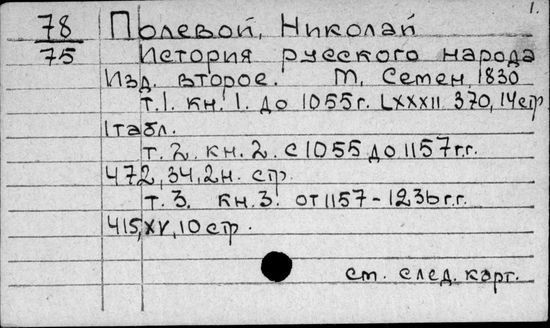 1.
78 Полевой, Николай
75 История русского народа
Изд. второе. М, Семен, 1830
т.1. кн. 1. до 1055г. LXXXII. 370, 14стр
1табл.
т. 2. кн. 2. с 1055 до 1157г.г.
472, 34, 2н. стр.
т. 3. кн. 3. от 1157-1236г.г.
415, XV, 10 стр.
см. след. карт.